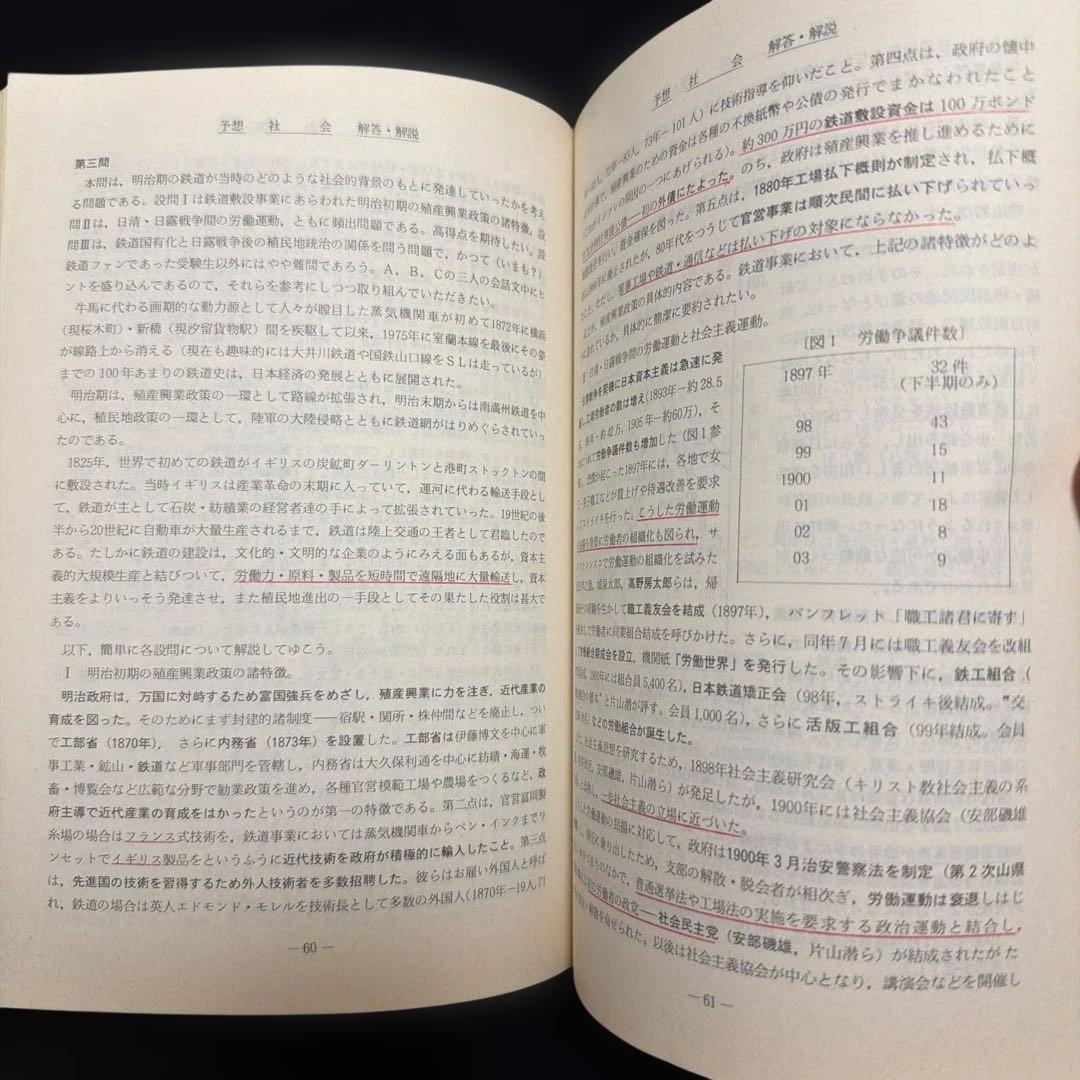 予想 社 会 解答・解説
第三問
本問は，明治期の鉄道が当時のどのような社会的背景のもとに発達していったかを考え
る問題である。設問Ⅰは鉄道敷設事業にあらわれた明治初期の殖産興業政策の諸特徴，設
問Ⅱは，日清・日露戦争間の労働運動，ともに頻出問題である。高得点を期待したい。設
問Ⅲは，鉄道国有化と日露戦争後の植民地統治の関係を問う問題で，かつて（いまも？）
鉄道ファンであった受験生以外にはやや難問であろう。A，B，Cの三人の会話文中にヒ
ントを盛り込んであるので，それらを参考にしつつ取り組んでいただきたい。
牛馬に代わる画期的な動力源として人々が瞠目した蒸気機関車が初めて1872年に横浜
（現桜木町）・新橋（現汐留貨物駅）間を疾駆して以来，1975年に室蘭本線を最後にその姿
が線路上から消える（現在も趣味的には大井川鉄道や国鉄山口線をSLは走っているが）
までの100年あまりの鉄道史は，日本経済の発展とともに展開された。
明治期は，殖産興業政策の一環として路線が拡張され，明治末期からは南満州鉄道を中
心に，植民地政策の一環として，陸軍の大陸侵略とともに鉄道網がはりめぐらされていっ
たのである。
1825年，世界で初めての鉄道がイギリスの炭鉱町ダーリントンと港町ストックトンの間
に敷設された。当時イギリスは産業革命の末期に入っていて，運河に代わる輸送手段とし
て，鉄道が主として石炭・紡績業の経営者達の手によって拡張されていった。19世紀の後
半から20世紀に自動車が大量生産されるまで，鉄道は陸上交通の王者として君臨したので
ある。たしかに鉄道の建設は，文化的・文明的な企業のようにみえる面もあるが，資本主
義的大規模生産と結びついて，労働力・原料・製品を短時間で遠隔地に大量輸送し，資本
主義をよりいっそう発達させ，また植民地進出の一手段としてその果たした役割は甚大で
ある。
以下，簡単に各設問について解説してゆこう。
Ⅰ 明治初期の殖産興業政策の諸特徴。
明治政府は，万国に対峙するため富国強兵をめざし，殖産興業に力を注ぎ，近代産業の
育成を図った。そのためにまず封建的諸制度――宿駅・関所・株仲間などを廃止し，つい
で工部省（1870年），さらに内務省（1873年）を設置した。工部省は伊藤博文を中心に軍
事工業・鉱山・鉄道など軍事部門を管轄し，内務省は大久保利通を中心に紡績・海運・牧
畜・博覧会など広範な分野で勧業政策を進め，各種官営模範工場や農場をつくるなど，政
府主導で近代産業の育成をはかったというのが第一の特徴である。第二点は，官営富岡製
糸場の場合はフランス式技術を，鉄道事業においては蒸気機関車からペン・インクまでワ
ンセットでイギリス製品をというふうに近代技術を政府が積極的に輸入したこと。第三点
は，先進国の技術を習得するため外人技術者を多数招聘した。彼らはお雇い外国人と呼ば
れ，鉄道の場合は英人エドモンド・モレルを技術長として多数の外国人（1870年－19人,71
― 60 ―
予想 社 会 解答・解説
72年－83人，73年－101人）に技術指導を仰いだこと。第四点は，政府の懐中
殖産興業のための資金は各種の不換紙幣や公債の発行でまかなわれたこと
インフレの原因の一つにあげられる）。約300万円の鉄道敷設資金は100万ポンド
公債――初の外債にたよった。のち，政府は殖産興業を推し進めるために
を行い，資金確保を図った。第五点は，1880年工場払下概則が制定され，払下概
廃止されたが，80年代をつうじて官営事業は順次民間に払い下げられていっ
ただし，軍事工場や鉄道・通信などは払い下げの対象にならなかった。
上が，殖産興業政策の具体的内容である。鉄道事業において，上記の諸特徴がどのよ
れているか，具体的に簡潔に要約されたい。
日清・日露戦争間の労働運動と社会主義運動。
戦争を契機に日本資本主義は急速に発
工場労働者の数は増え（1893年－約28.5
年－約42万，1905年－約60万），そ
て労働争議件数も増加した（図1参
恐慌が起こった1897年には，各地で女
工・男子職工などが賃上げや待遇改善を要求
ストライキを行った。こうした労働運動
を背景に労働者の組織化も図られ，サ
ンフランシスコで労働運動の組織化を試みた
城泉太郎，高野房太郎らは，帰
の経験を生かして職工義友会を結成（1897年），パンフレット「職工諸君に寄す」
て労働者に同業組合結成を呼びかけた。さらに，同年7月には職工義友会を改組
労働組合期成会を設立，機関紙「労働世界」を発行した。その影響下に，鉄工組合（
1900年には組合員5,400名），日本鉄道矯正会（98年，ストライキ後結成。“交
と片山潜が評す。会員1,000名），さらに活版工組合（99年結成。会員
などの労働組合が誕生した。
社会主義思想を研究するため，1898年社会主義研究会（キリスト教社会主義の系
安部磯雄，片山潜ら）が発足したが，1900年には社会主義協会（安部磯雄
一歩社会主義の立場に近づいた。
労働運動の昂揚に対応して，政府は1900年3月治安警察法を制定（第2次山県
に乗り出したため，支部の解散・脱会者が相次ぎ，労働運動は衰退しはじ
まりのなかで，普通選挙法や工場法の実施を要求する政治運動と結合し，
の労働者の政党――社会民主党（安部磯雄，片山潜ら）が結成されたがた
解散を命ぜられた。以後は社会主義協会が中心となり，講演会などを開催し
〔図1 労働争議件数〕
1897年 32件
（下半期のみ）
98 43
99 15
1900 11
01 18
02 8
03 9
― 61 ―